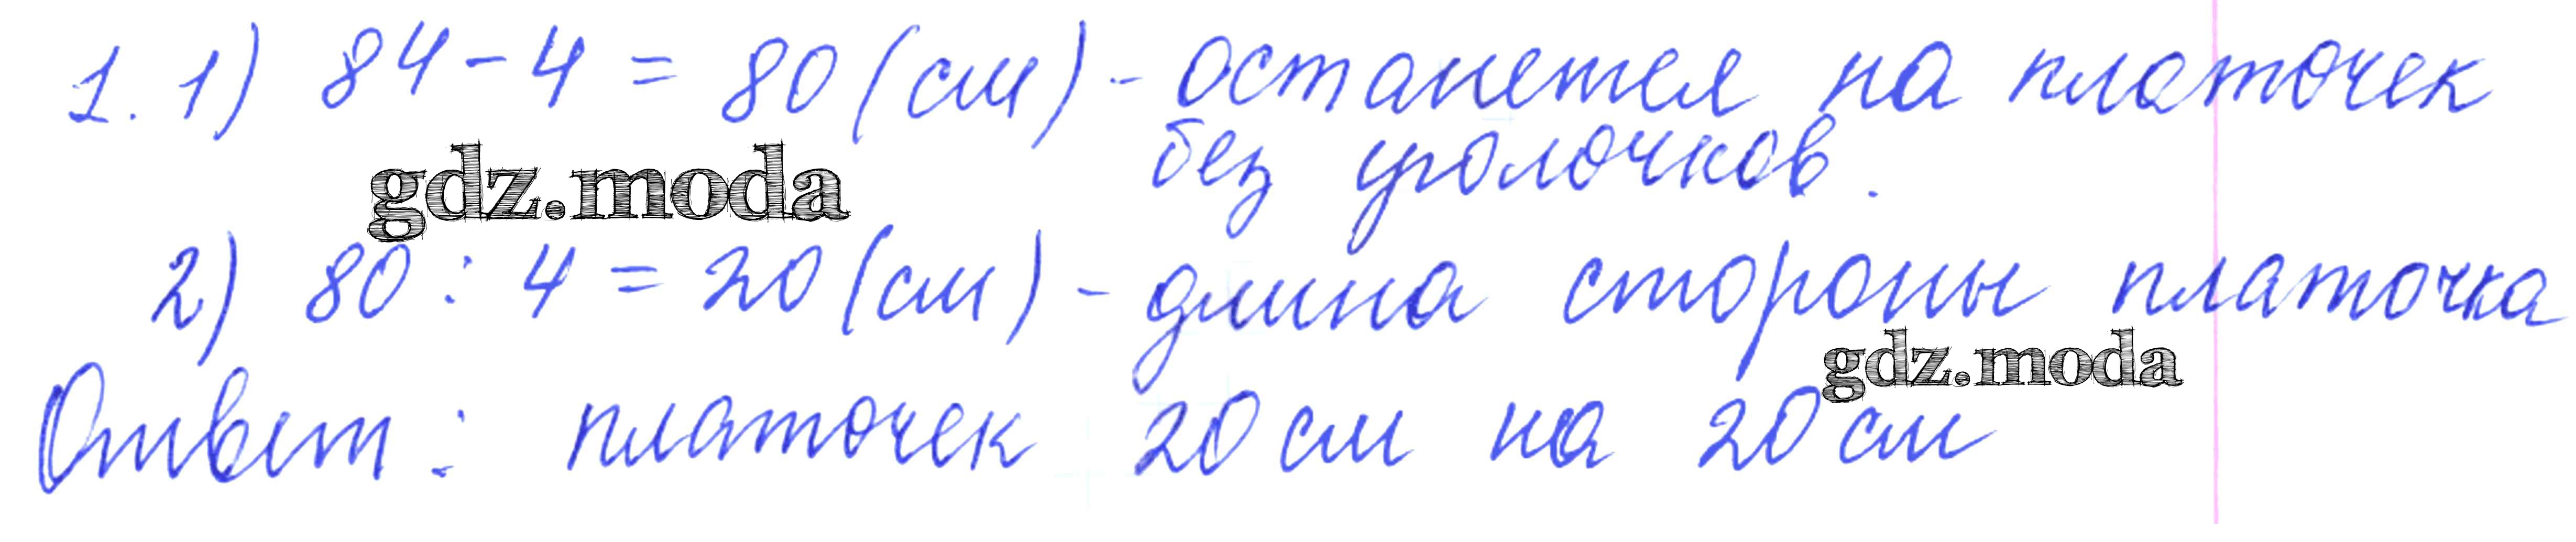 1. 1) 84 - 4 = 80 (см) - останется на платочек
без уголочков.
gdz.moda
2) 80 : 4 = 20 (см) - длина стороны платочка
gdz.moda
Ответ: платочек 20 см на 20 см